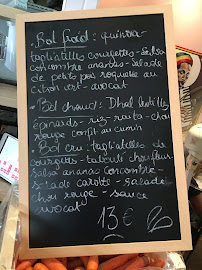 - Bol froid : quinoa
tagliatelles courgettes - salsa
concombre ananas - salade
de petits pois roquette au
citron vert - avocat
- Bol chaud : Dhal lentilles
épinards - riz - raita - chou
rouge confit au cumin
- Bol cru : tagliatelles de
courgettes - taboulé choufleur
salsa ananas concombre -
salade carotte - salade
chou rouge - sauce
avocat
13€